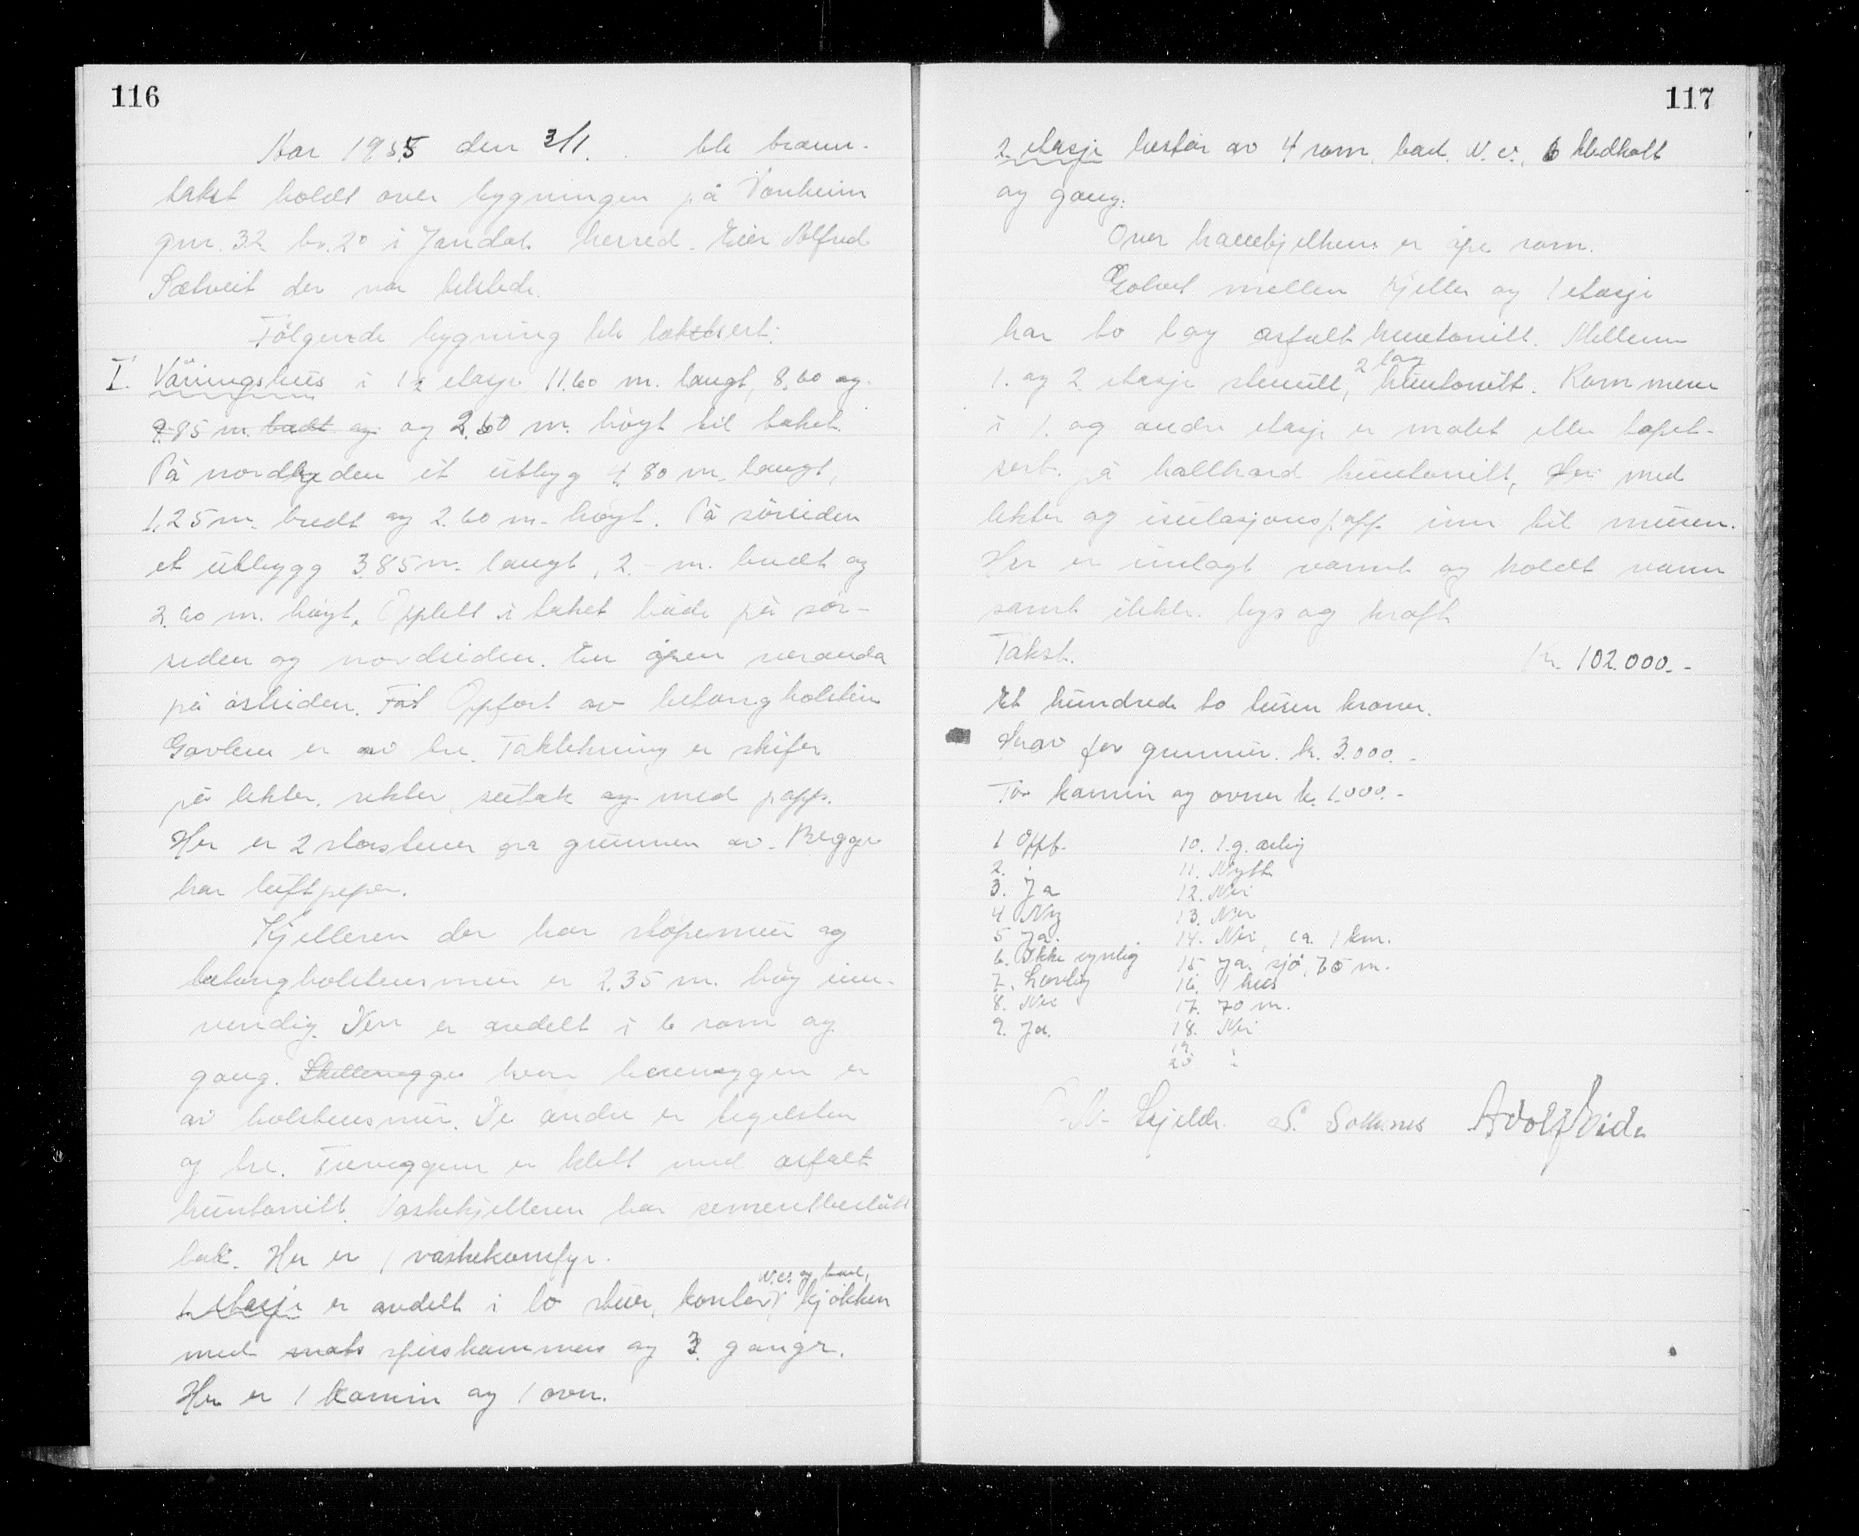 116
Aar 1955 den 3/1. ble brann-
takst holdt over bygningen på Vonheim
gnr. 32 br. 20 i Jondal herred. Eier Alfred
Sætveit der var tilstede.
Følgende bygning ble taksert:
I. Våningshus i 1½ etasje 11.60 m. langt, 8,60 og
9.85 m. bredt og og 2.60 m. høgt til taket.
På nordsyden et utbyg 4.80 m. langt,
1,25 m. bredt og 2.60 m. høgt. På sørsiden
et utbygg 3.85 m. langt, 2 m. bredt og
2.60 m. høgt. Opplett i taket både på sør-
siden og nordsiden. En åpen veranda
på østsiden. Oppført av betongholstein
Gavlene er av tre. Taktekning er skifer
på lekter, rekter, sutak og med papp.
Her er 2 skorsteiner fra grunnen av. Begge
har luftpiper.
Kjelleren der har støpemur og
betongholsteinsmur er 2.35 m. høg inn-
vendig. Den er avdelt i 6 rom og
gang. Skilleveggen hvor bæreveggen er
av holsteinsmur. De andre er teglstein
og tre. Treveggene er kledt med asfalt
huntonitt. Vaskekjelleren har sementbeslått
tak. Her er 1 vaskekomfyr.
1. etasje er avdelt i to stuer, kontor, W.c. og bad, kjøkken
med mats spiskammers og 3 ganger.
Her er 1 kamin og 1 ovn.
117
2 etasje består av 4 rom, bad, W.c., 6 kledkott
og gang.
Over hanebjelken er åpe rom.
Golvet mellem kjeller og 1 etasje
har to lag asfalt huntonitt. Mellem
1. og 2 etasje stenull, 2 lag huntonitt. Rommene
i 1. og andre etasje er malt eller tapet-
sert på halvhard huntonitt, med
lekter og isulasjonspapp inn til muren.
Her er innlagt varmt og koldt vann
samt elektr. lys og kraft
Takst. kr. 102.000.-
Et hundrede to tusen kroner.
Herav for grunnmur. kr. 3.000.-
For kamin og ovner kr. 1.000.-
1 Oppf. 10. I.g. årlig
2. " 11. Nytt
3. Ja 12. Nei
4 Ny 13. Nei
5 Ja. 14. Nei, ca. 1 km.
6. Ikke synlig 15 Ja. sjø, 70 m.
7. Lovlig 16. 1 hus
8. Nei 17. 70 m.
9. Ja. 18. Nei
19. "
20 "
Kjelde. S. Solesnes Adolf Eide